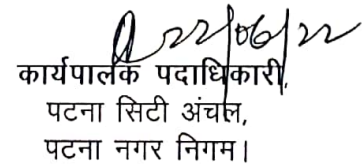 22/06/22
कार्यपालक पदाधिकारी,
पटना सिटी अंचल,
पटना नगर निगम।